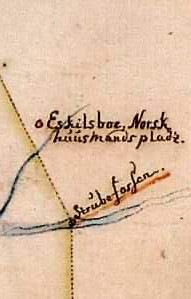 o Eskilsboe, Norsk
huusmands pladz.
Strubefossen.